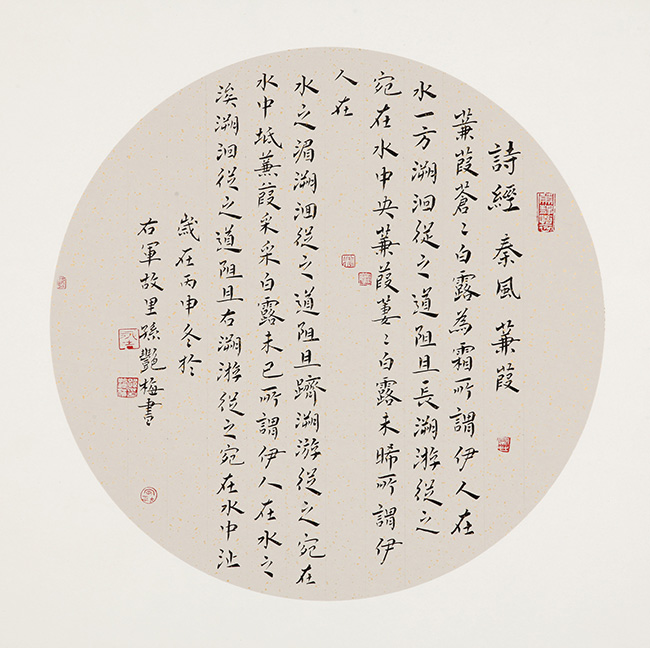 詩經 秦風 蒹葭
蒹葭蒼〻白露為霜所謂伊人在
水一方溯洄從之道阻且長溯游從之
宛在水中央蒹葭萋〻白露未晞所謂伊
人在
水之湄溯洄從之道阻且躋溯游從之宛在
水中坻蒹葭采采白露未已所謂伊人在水之
涘溯洄從之道阻且右溯游從之宛在水中沚
歲在丙申冬於
右軍故里孫艷梅書